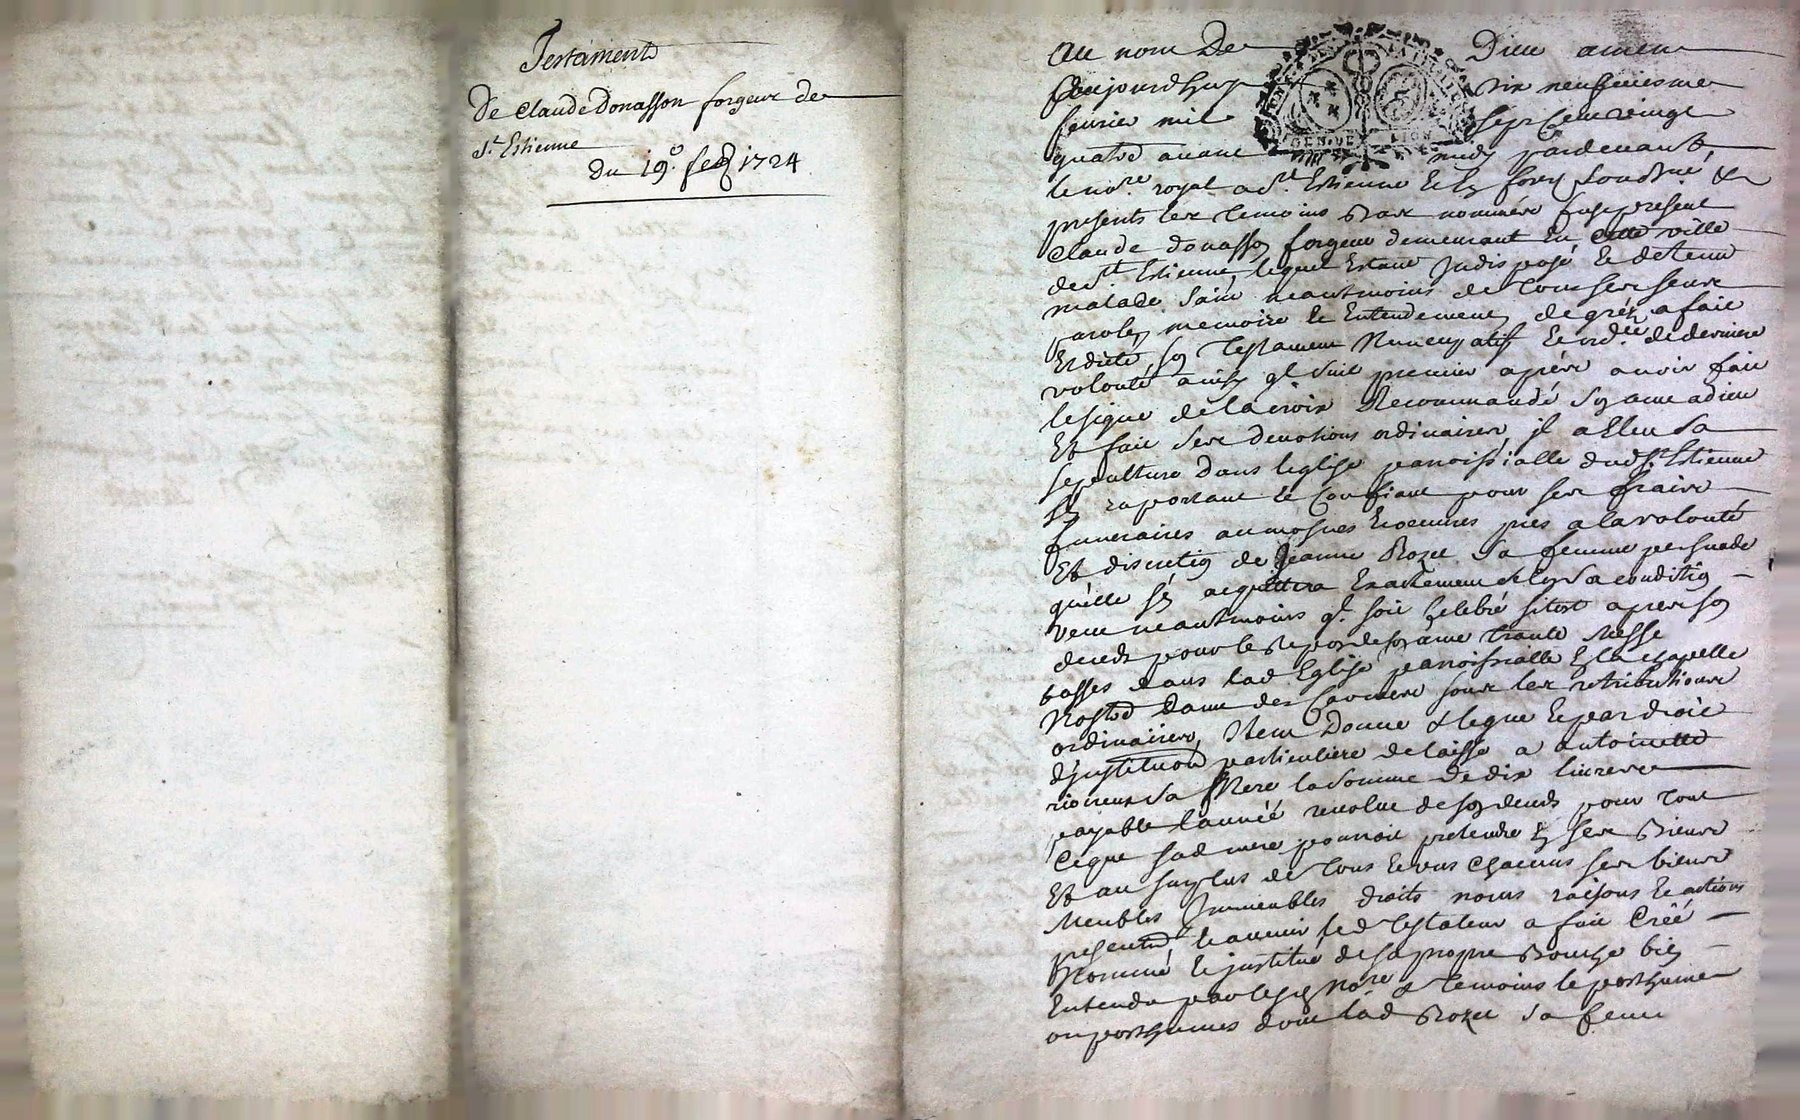 Testament
De Claude Donasson forgeur de
St. Estienne
du 19e. feb 1724
Au nom De Dieu amen
Aujourdhuy dix neufviesme
febvrier mil sept Cent vingt
quatre avant midy pardevant
le nore. royal a St. Estienne En forez soubsné &
presents les temoins Bas nommés fust present
Claude donasson forgeur demeurant En Cette ville
de St. Estienne, lequel Estant Indisposé Et detenu
malade sain neantmoins de Tous ses sens
parolle, memoire Et Entendement, de gré, a fait
Et dicté son Testament Nuncupatif Et ordce de derniere
volonté ainsy ql suit premier apres avoir fait
le signe de la croix Recommandé son ame a dieu
Et fait ses devotions ordinaires, jl a Elleu sa
sepulture Dans leglise parroissialle dud St. Estienne
sen raportant Et Confiant pour ses fraix
funeraires aumosnes Et oeuvres pies a la volonté
Et discretion de Jeanne Roze sa femme persuadé
quelle sen acquittera Exactement selon sa condition
veut neantmoins ql soit Celebré sitost apres son
deceds pour le Repos de son ame trante Messe
basses dans lad Eglise parroissialle En la chapelle
Nostre Dame des sous les retributions
ordinaires, Item Donne & legue Et par droit
dinstitution particuliere delaisse a antoinette
sa Mere la somme de dix livres
payable lannée revolue de son deceds pour tout
Ce que sad mere pourroit pretendre En ses Biens
Et au surplus de Tous Et uns chacuns ses biens
Meubles Immeubles droits noms raisons Et actions
presents Et avenir led Testateur a fait Créé
Nommé Et institué de sa propre Bouche bien
Entendu par lesd nore & temoins le posthume
ou posthumes dont lad Roze sa femme